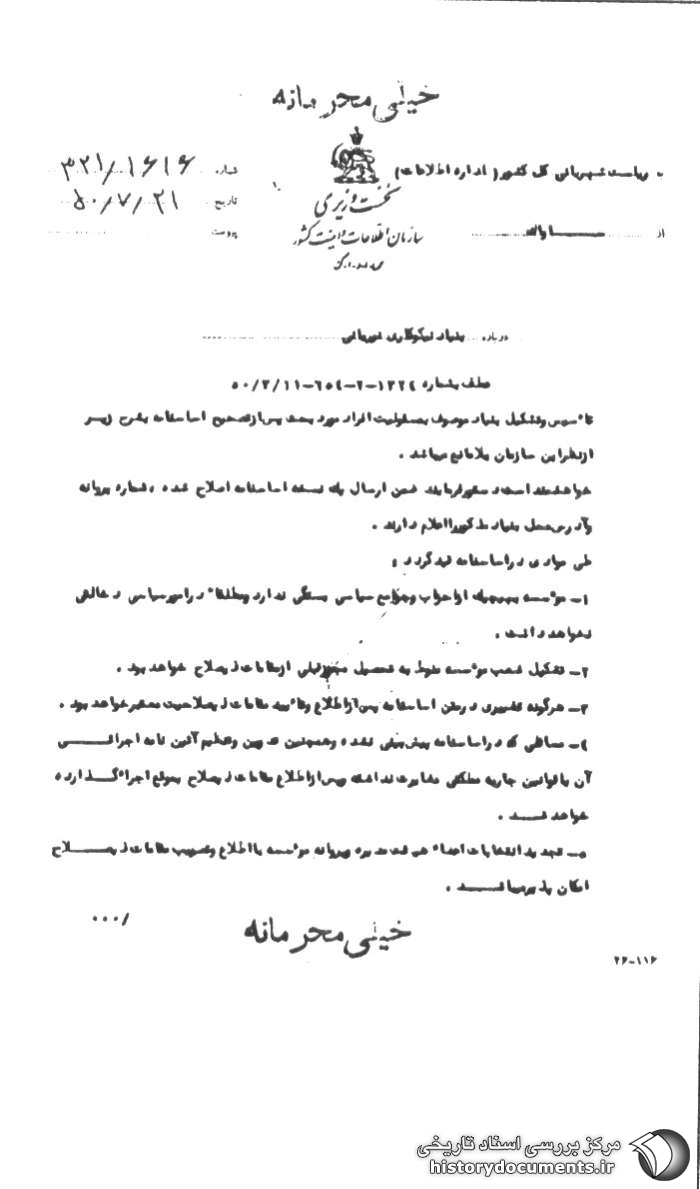 خیلی محرمانه
ریاست شهربانی کل کشور ( اداره اطلاعات )
نخست وزیری
سازمان اطلاعات و امنیت کشور
شماره ۳۲۱/۱۶۱۶
تاریخ ۵۰/۷/۲۱
پیوست
از ســـاواك
درباره بنیاد نیکوکاری شهربانی
عطف بشماره ۱۳۲۴-۲-۶۵۴-۵۰/۳/۱۱
تأسیس وتشکیل بنیاد موصوف بمسئولیت افراد مورد بحث پس ازتصحیح اساسنامه بشرح زیــر
ازنظر این سازمان بلامانع میباشد .
خواهشمند است دستور فرمایند ضمن ارسال یك نسخه اساسنامه اصلاح شده ، شماره پروانه
وآدرس محل بنیاد مذکور را اعلام دارند .
طی موادی در اساسنامه قید گردد :
۱- مؤسسه بهیچیك از احزاب وجوامع سیاسی بستگی ندارد ومطلقاً در امور سیاسی دخالتی
نخواهد داشت .
۲- تشکیل شعب مؤسسه منوط به تحصیل مجوز قبلی از مقامات ذیصلاح خواهد بود .
۳- هرگونه تغییری در متن اساسنامه پس از اطلاع وتأیید مقامات ذیصلاحیت معتبر خواهد بود .
۴- مسائلی که در اساسنامه پیش بینی نشده وهمچنین تدوین وتنظیم آئین نامه اجرائــی
آن با قوانین جاریه مملکتی مغایرت نداشته وپس از اطلاع مقامات ذیصلاح بموقع اجراء گــذارده
خواهد شـــد .
۵- تجدید انتخابات اعضاء هیئت مدیره وپروانه مؤسسه با اطلاع وتصویب مقامات ذیصـــلاح
امکان پذیر میباشـــد .
/۰۰۰
خیلی محرمانه
۲۶-۱۱۶
مرکز بررسی اسناد تاریخی
historydocuments.ir